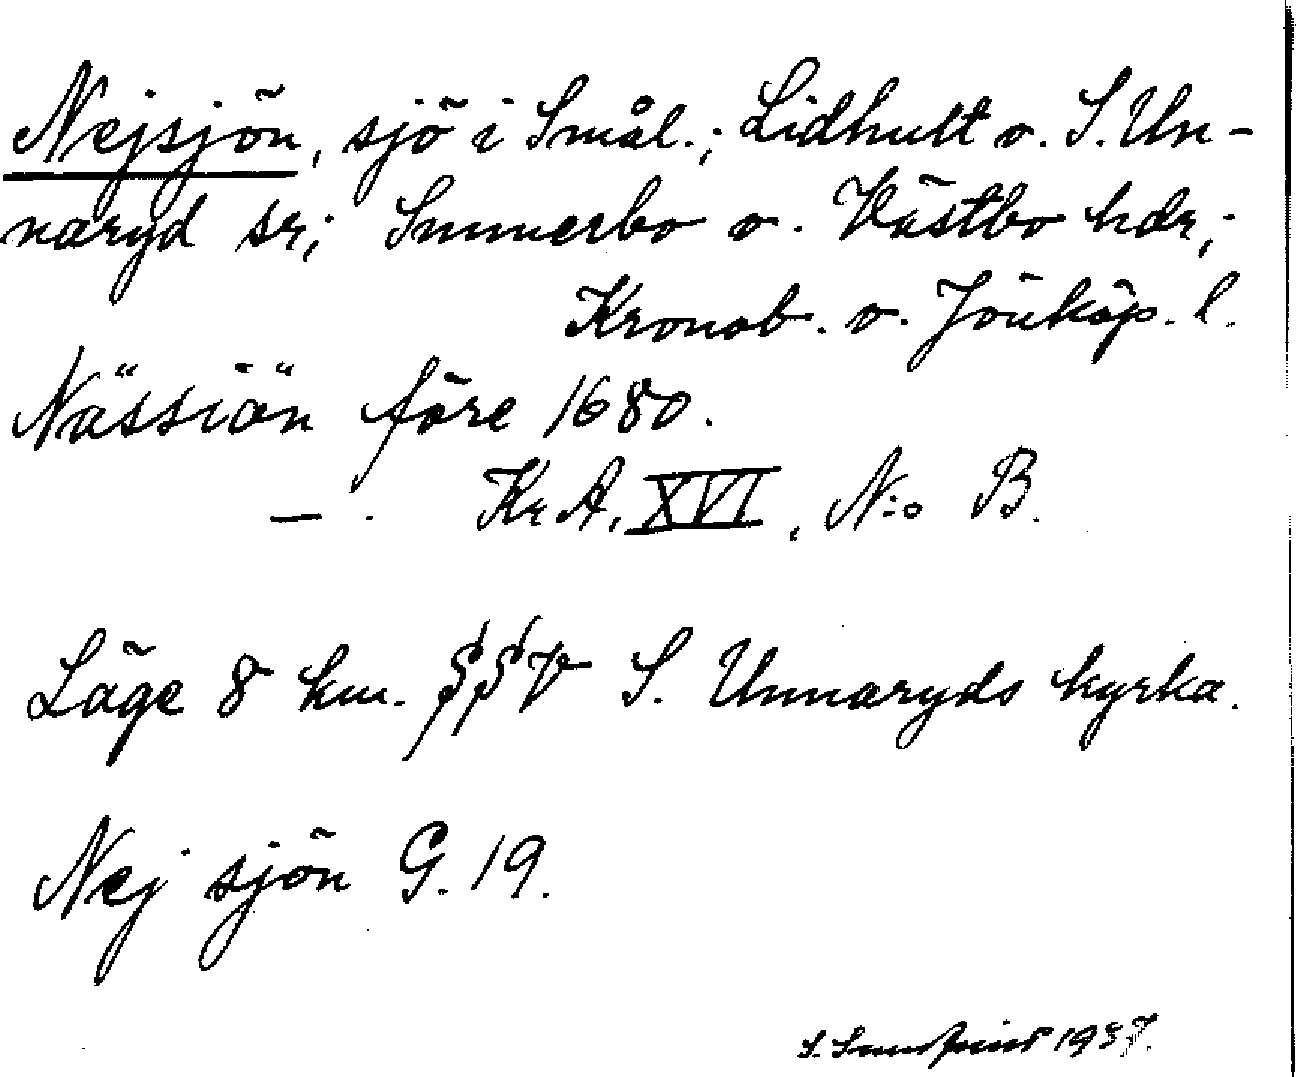 Nejsjön, sjö i Smål.; Lidhult o. S. Un-
naryd sr; Sunnerbo o. Västbo hdr;
Kronob. o. Jönköp. l.
Nässiön före 1680.
— . Kr A, XVI, N:o B.
Läge 8 km. SSV S. Unnaryds kyrka.
Nej sjön G. 19.
S. 1937.